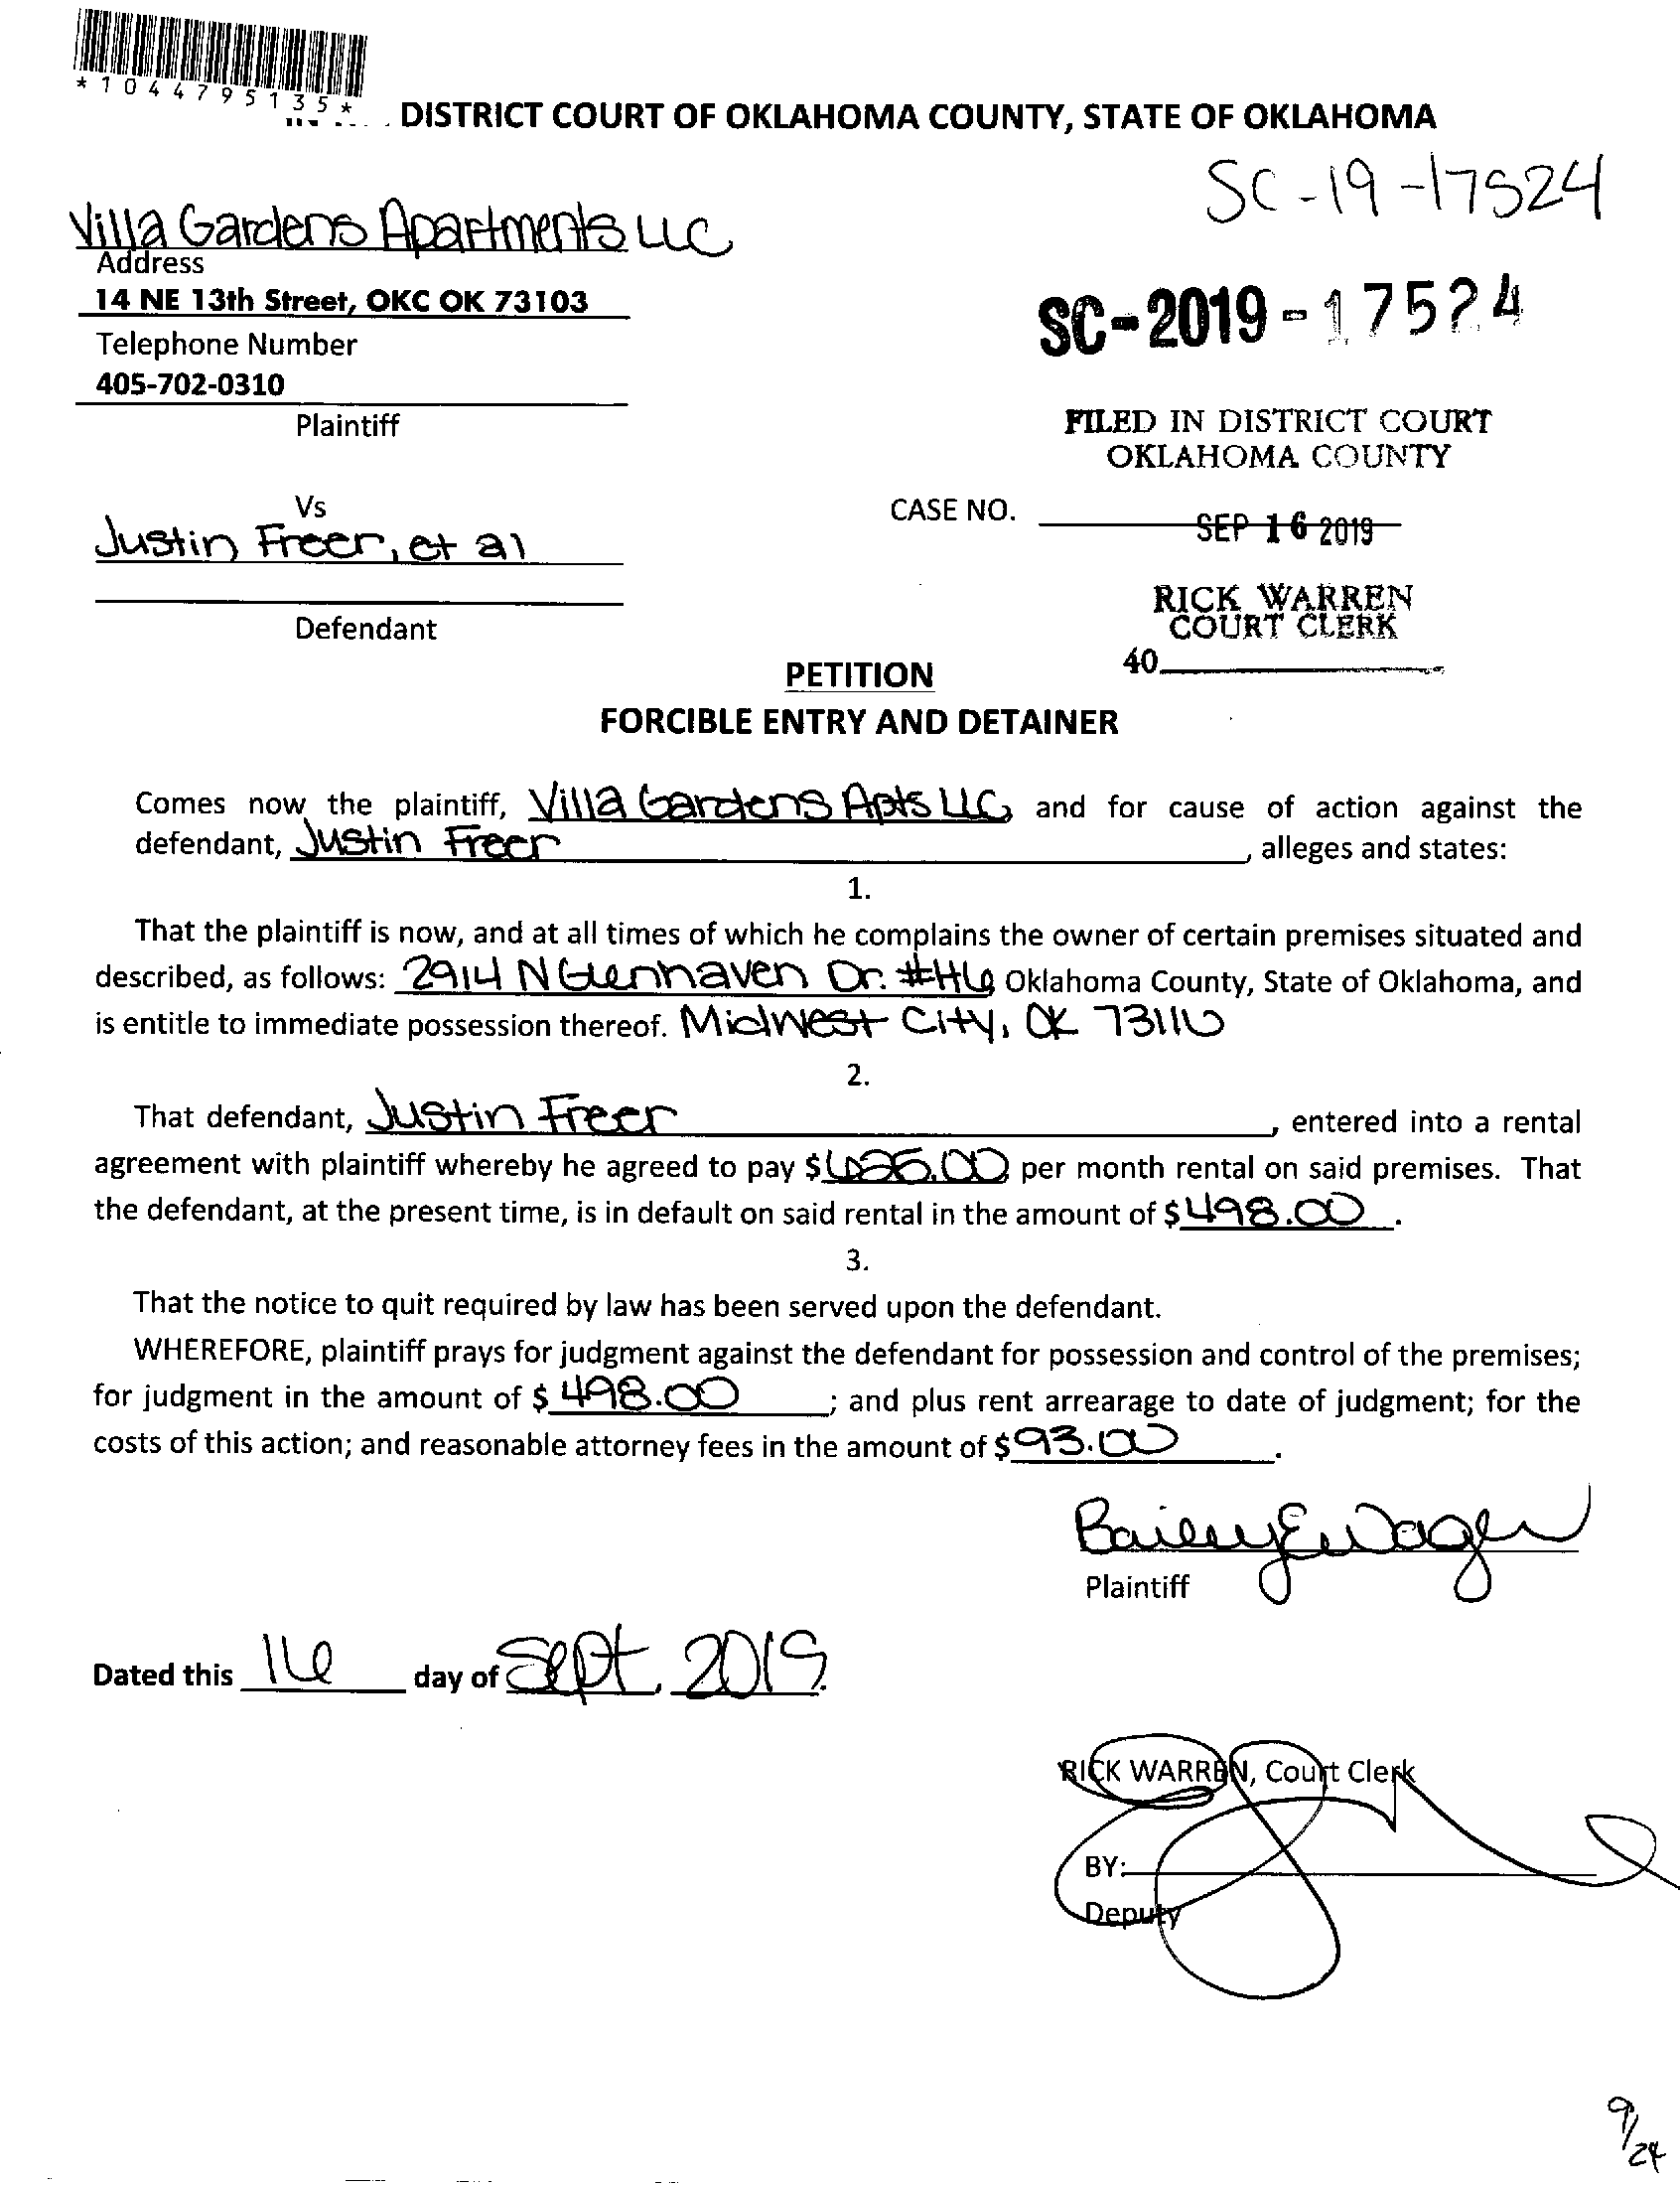 *1044795135*
DISTRICT COURT OF OKLAHOMA COUNTY, STATE OF OKLAHOMA
SC-19-17524
Villa Gardens Apartments LLC
Address
14 NE 13th Street, OKC OK 73103
SC-2019-17524
Telephone Number
405-702-0310
Plaintiff
FILED IN DISTRICT COURT
OKLAHOMA COUNTY
Vs
CASE NO.
SEP 16 2019
Justin Freer, et al
RICK WARREN
COURT CLERK
Defendant
40
PETITION
FORCIBLE ENTRY AND DETAINER
Comes now the plaintiff, Villa Gardens Apts LLC, and for cause of action against the
defendant, Justin Freer, alleges and states:
1.
That the plaintiff is now, and at all times of which he complains the owner of certain premises situated and
described, as follows: 2914 N Glenhaven Dr. #H6 Oklahoma County, State of Oklahoma, and
is entitle to immediate possession thereof. Midwest City, OK 73110
2.
That defendant, Justin Freer, entered into a rental
agreement with plaintiff whereby he agreed to pay $625.00 per month rental on said premises. That
the defendant, at the present time, is in default on said rental in the amount of $498.00.
3.
That the notice to quit required by law has been served upon the defendant.
WHEREFORE, plaintiff prays for judgment against the defendant for possession and control of the premises;
for judgment in the amount of $ 498.00; and plus rent arrearage to date of judgment; for the
costs of this action; and reasonable attorney fees in the amount of $93.00.
Bailey E Wager
Plaintiff
Dated this 16 day of Sept, 2019.
RICK WARREN, Court Clerk
BY:
Deputy
9/24